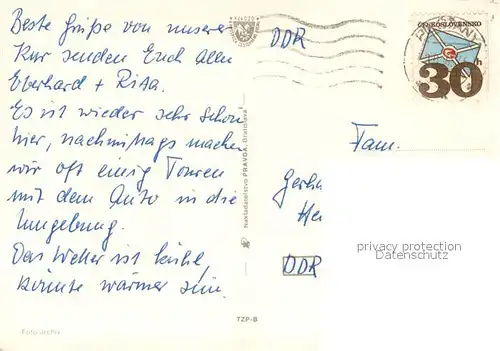 Beste Grüße von unserer
Kur senden Euch allen
Eberhard + Rita.
Es ist wieder sehr schön
hier, nachmittags machen
wir oft einig Touren
mit dem Auto in die
Umgebung.
Das Wetter ist kühl,
könnte wärmer sein.
Foto archiv
Nakladateľstvo PRAVDA, Bratislava
TZP-B
DDR
ČESKOSLOVENSKO
30h
Fam.
Gerha
He
DDR
privacy protection
Datenschutz